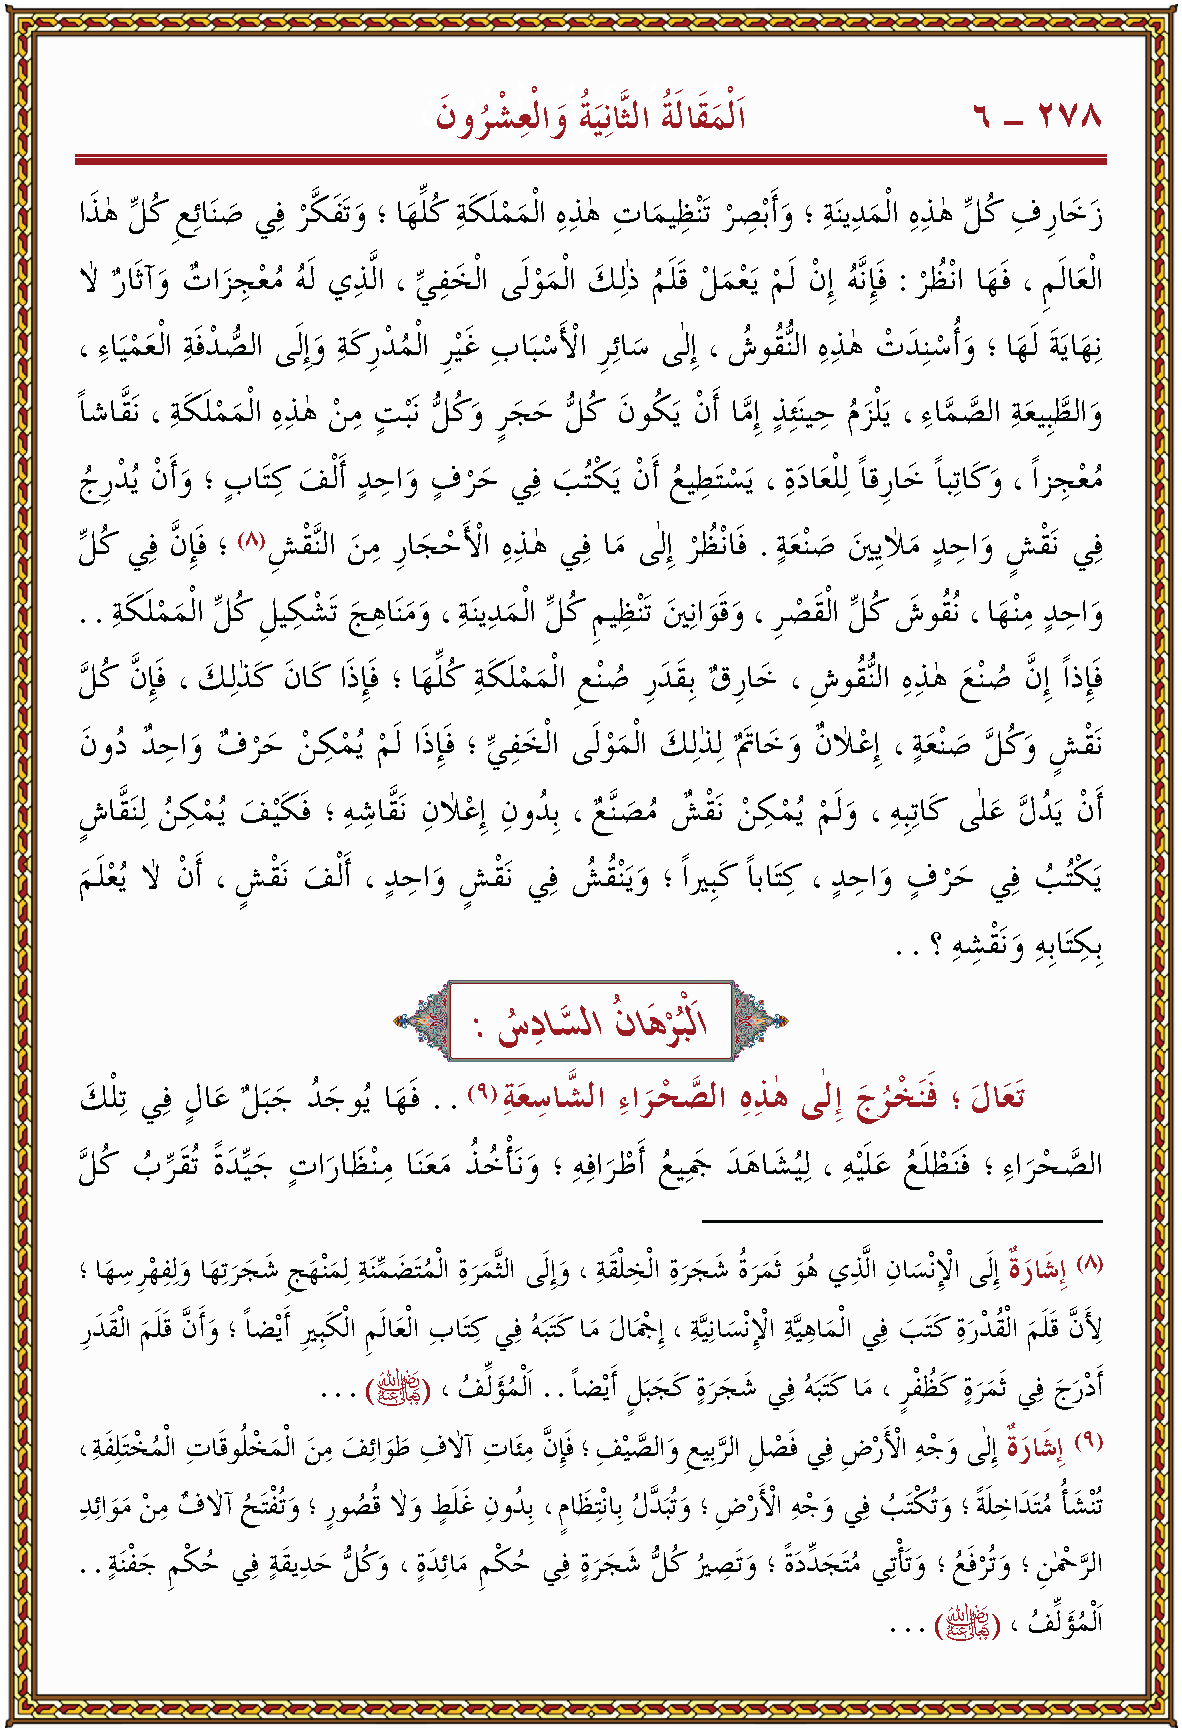 ٢٧٨ - ٦ اَلْمَقَالَةُ الثَّانِيَةُ وَالْعِشْرُونَ
زَخَارِفِ كُلِّ هٰذِهِ الْمَدِينَةِ ؛ وَأَبْصِرْ تَنْظِيمَاتِ هٰذِهِ الْمَمْلَكَةِ كُلِّهَا ؛ وَتَفَكَّرْ فِي صَنَائِعِ كُلِّ هٰذَا
الْعَالَمِ ، فَهَا انْظُرْ : فَإِنَّهُ إِنْ لَمْ يَعْمَلْ قَلَمُ ذٰلِكَ الْمَوْلَى الْخَفِيِّ ، الَّذِي لَهُ مُعْجِزَاتٌ وَآثَارٌ لَا
نِهَايَةَ لَهَا ؛ وَأُسْنِدَتْ هٰذِهِ النُّقُوشُ ، إِلٰى سَائِرِ الْأَسْبَابِ غَيْرِ الْمُدْرِكَةِ وَإِلَى الصُّدْفَةِ الْعَمْيَاءِ ،
وَالطَّبِيعَةِ الصَّمَّاءِ ، يَلْزَمُ حِينَئِذٍ إِمَّا أَنْ يَكُونَ كُلُّ حَجَرٍ وَكُلُّ نَبْتٍ مِنْ هٰذِهِ الْمَمْلَكَةِ ، نَقَّاشاً
مُعْجِزاً ، وَكَاتِباً خَارِقاً لِلْعَادَةِ ، يَسْتَطِيعُ أَنْ يَكْتُبَ فِي حَرْفٍ وَاحِدٍ أَلْفَ كِتَابٍ ؛ وَأَنْ يُدْرِجُ
فِي نَقْشٍ وَاحِدٍ مَلَايِينَ صَنْعَةٍ . فَانْظُرْ إِلٰى مَا فِي هٰذِهِ الْأَحْجَارِ مِنَ النَّقْشِ(٨) ؛ فَإِنَّ فِي كُلِّ
وَاحِدٍ مِنْهَا ، نُقُوشَ كُلِّ الْقَصْرِ ، وَقَوَانِينَ تَنْظِيمِ كُلِّ الْمَدِينَةِ ، وَمَنَاهِجَ تَشْكِيلِ كُلِّ الْمَمْلَكَةِ . .
فَإِذاً إِنَّ صُنْعَ هٰذِهِ النُّقُوشِ ، خَارِقٌ بِقَدَرِ صُنْعِ الْمَمْلَكَةِ كُلِّهَا ؛ فَإِذَا كَانَ كَذٰلِكَ ، فَإِنَّ كُلَّ
نَقْشٍ وَكُلَّ صَنْعَةٍ ، إِعْلَانٌ وَخَاتَمٌ لِذٰلِكَ الْمَوْلَى الْخَفِيِّ ؛ فَإِذَا لَمْ يُمْكِنْ حَرْفٌ وَاحِدٌ دُونَ
أَنْ يَدُلَّ عَلٰى كَاتِبِهِ ، وَلَمْ يُمْكِنْ نَقْشٌ مُصَنَّعٌ ، بِدُونِ إِعْلَانِ نَقَّاشِهِ ؛ فَكَيْفَ يُمْكِنُ لِنَقَّاشٍ
يَكْتُبُ فِي حَرْفٍ وَاحِدٍ ، كِتَاباً كَبِيراً ؛ وَيَنْقُشُ فِي نَقْشٍ وَاحِدٍ ، أَلْفَ نَقْشٍ ، أَنْ لَا يُعْلَمَ
بِكِتَابِهِ وَنَقْشِهِ ؟ . .
اَلْبُرْهَانُ السَّادِسُ :
تَعَالَ ؛ فَنَخْرُجَ إِلٰى هٰذِهِ الصَّحْرَاءِ الشَّاسِعَةِ(٩) . . فَهَا يُوجَدُ جَبَلٌ عَالٍ فِي تِلْكَ
الصَّحْرَاءِ ؛ فَنَطْلَعُ عَلَيْهِ ، لِيُشَاهَدَ جَمِيعُ أَطْرَافِهِ ؛ وَنَأْخُذُ مَعَنَا مِنْظَارَاتٍ جَيِّدَةً تُقَرِّبُ كُلَّ
(٨) إِشَارَةٌ إِلَى الْإِنْسَانِ الَّذِي هُوَ ثَمَرَةُ شَجَرَةِ الْخِلْقَةِ ، وَإِلَى الثَّمَرَةِ الْمُتَضَمِّنَةِ لِمَنْهَجِ شَجَرَتِهَا وَلِفِهْرِسِهَا ؛
لِأَنَّ قَلَمَ الْقُدْرَةِ كَتَبَ فِي الْمَاهِيَّةِ الْإِنْسَانِيَّةِ ، إِجْمَالَ مَا كَتَبَهُ فِي كِتَابِ الْعَالَمِ الْكَبِيرِ أَيْضاً ؛ وَأَنَّ قَلَمَ الْقَدَرِ
أَدْرَجَ فِي ثَمَرَةٍ كَظُفْرٍ ، مَا كَتَبَهُ فِي شَجَرَةٍ كَجَبَلٍ أَيْضاً . . اَلْمُؤَلِّفُ ، (رضي الله تعالى عنه) . . .
(٩) إِشَارَةٌ إِلٰى وَجْهِ الْأَرْضِ فِي فَصْلِ الرَّبِيعِ وَالصَّيْفِ ؛ فَإِنَّ مِئَاتِ آلَافِ طَوَائِفَ مِنَ الْمَخْلُوقَاتِ الْمُخْتَلِفَةِ ،
تُنْشَأُ مُتَدَاخِلَةً ؛ وَتُكْتَبُ فِي وَجْهِ الْأَرْضِ ؛ وَتُبَدَّلُ بِانْتِظَامٍ ، بِدُونِ غَلَطٍ وَلَا قُصُورٍ ؛ وَتُفْتَحُ آلَافٌ مِنْ مَوَائِدِ
الرَّحْمٰنِ ؛ وَتُرْفَعُ ؛ وَتَأْتِي مُتَجَدِّدَةً ؛ وَتَصِيرُ كُلُّ شَجَرَةٍ فِي حُكْمِ مَائِدَةٍ ، وَكُلُّ حَدِيقَةٍ فِي حُكْمِ جَفْنَةٍ . .
اَلْمُؤَلِّفُ ، (رضي الله تعالى عنه) . . .